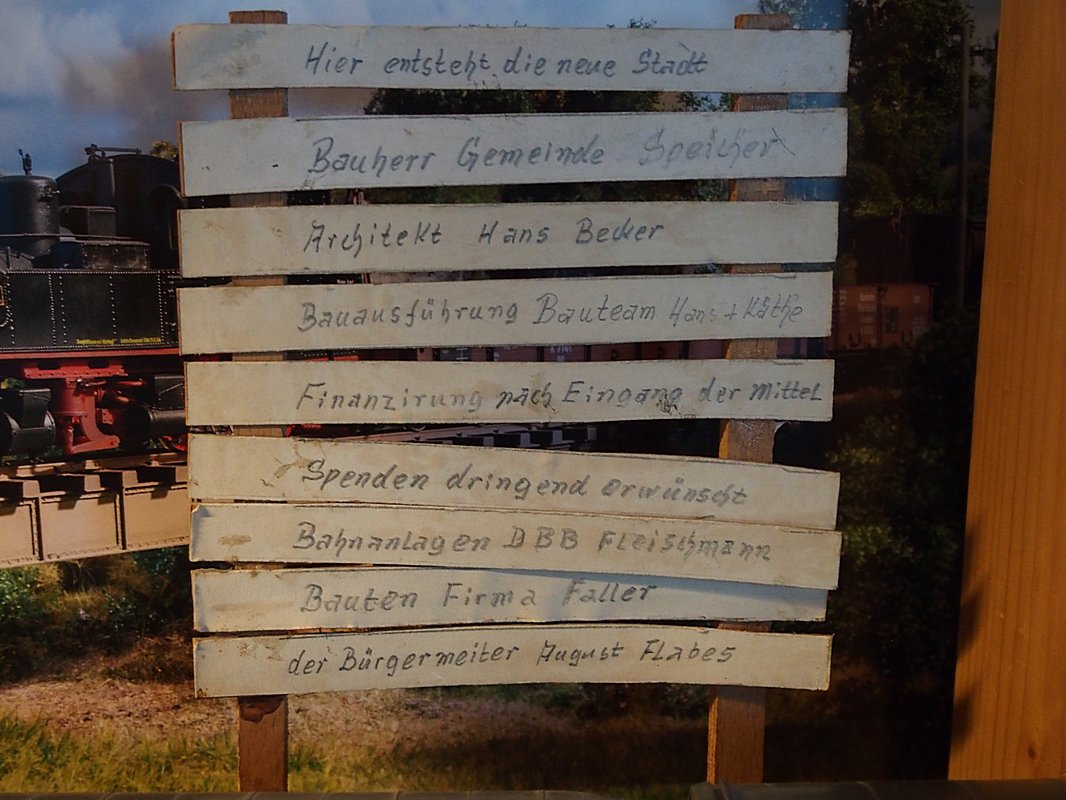 Hier entsteht die neue Stadt
Bauherr Gemeinde Speicher
Architekt Hans Becker
Bauausführung Bauteam Hans + Käthe
Finanzirung nach Eingang der Mittel
Spenden dringend erwünscht
Bahnanlagen DBB Fleischmann
Bauten Firma Faller
der Bürgermeiter August Flabes